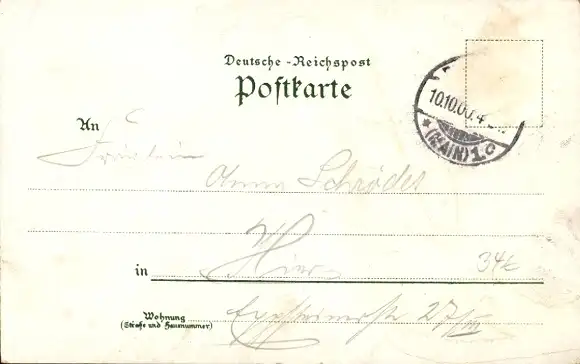 Deutsche-Reichspost
Postkarte
10.10.00.4
*(MAIN)1.c
An
Fräulein
Anna Schröder
in Hier
34k
Wohnung
(Straße und Hausnummer)
27/III